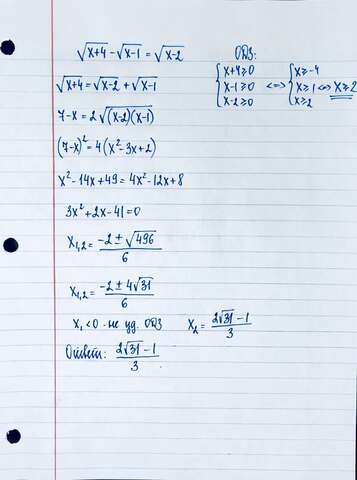 √(x+4) - √(x-1) = √(x-2)
ОДЗ:
{ x+4≥0 <=> { x≥-4
x-1≥0 x≥1 <=> x≥2
x-2≥0 x≥2
√(x+4) = √(x-2) + √(x-1)
7-x = 2√((x-2)(x-1))
(7-x)² = 4(x²-3x+2)
x²-14x+49 = 4x²-12x+8
3x²+2x-41=0
x₁,₂ = (-2±√496)/6
x₁,₂ = (-2±4√31)/6
x₁<0 - не уд. ОДЗ x₂ = (2√31-1)/3
Ответ: (2√31-1)/3